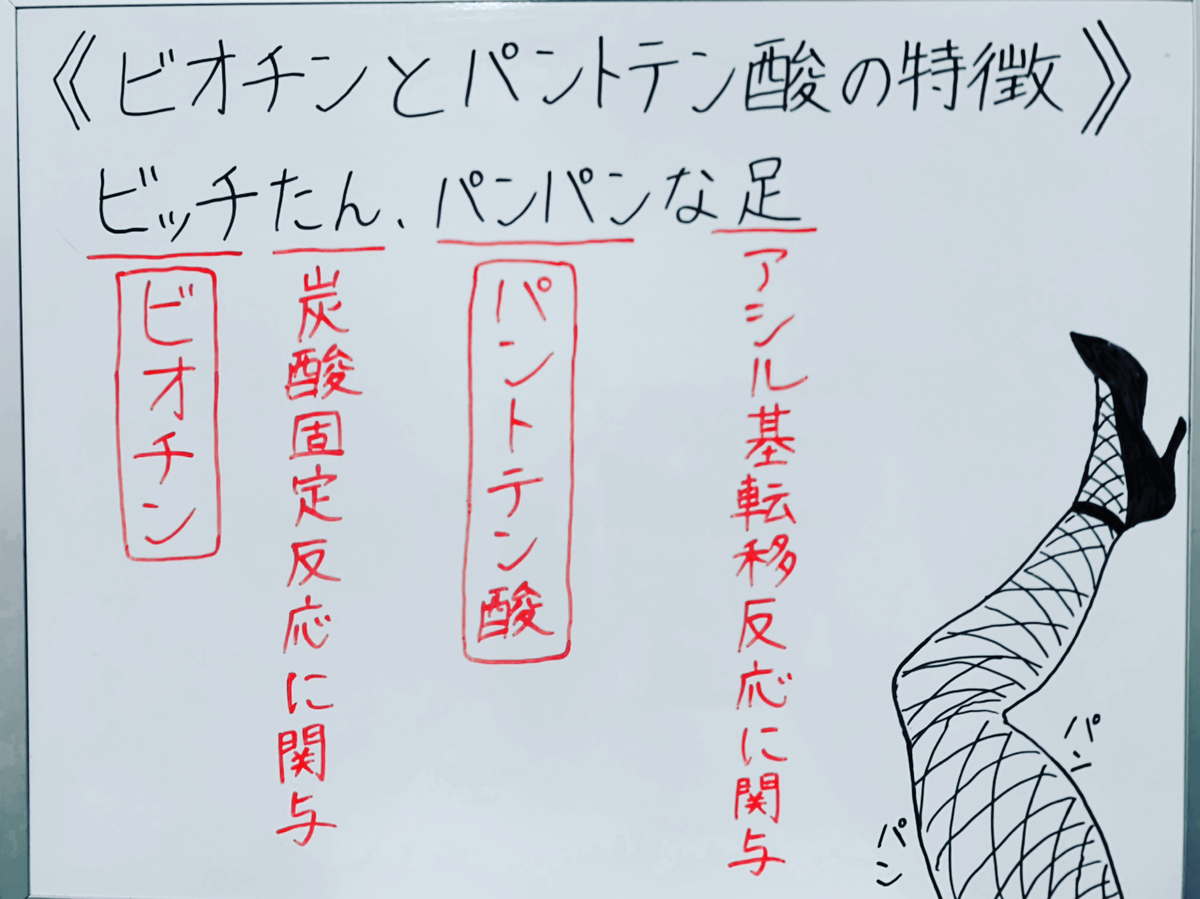 《ビオチンとパントテン酸の特徴》
ビッチたん、パンパンな足
ビオチン
炭酸固定反応に関与
パントテン酸
アシル基転移反応に関与
パン
パン